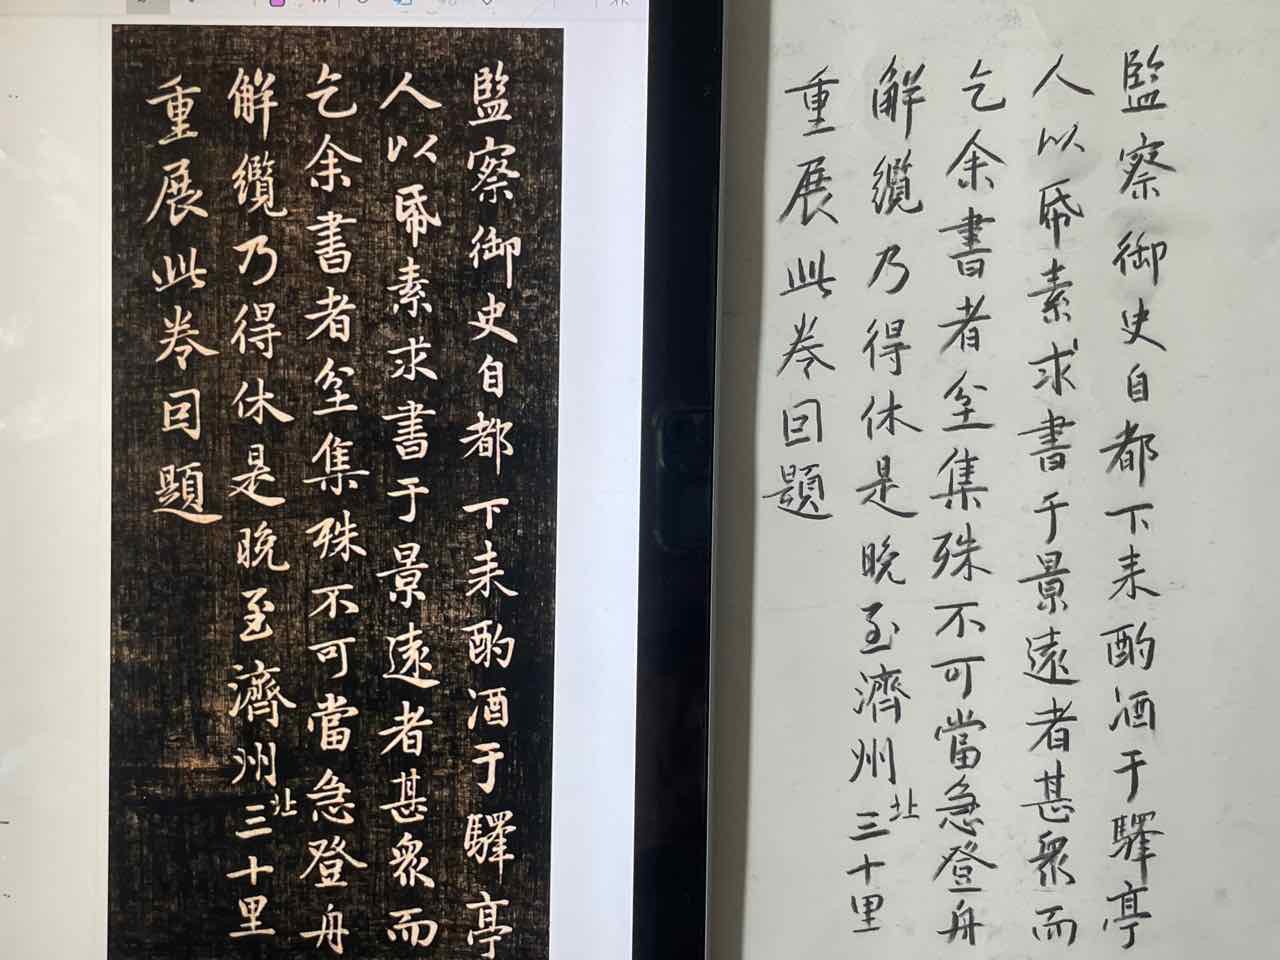 監察御史自都下来酌酒于驛亭
人以帋素求書于景遠者甚衆而
乞余書者坌集殊不可當急登舟
解纜乃得休是晚至濟州北三十里
重展此卷因題
監察御史自都下来酌酒于驛亭
人以帋素求書于景遠者甚衆而
乞余書者坌集殊不可當急登舟
解纜乃得休是晚至濟州北三十里
重展此卷因題